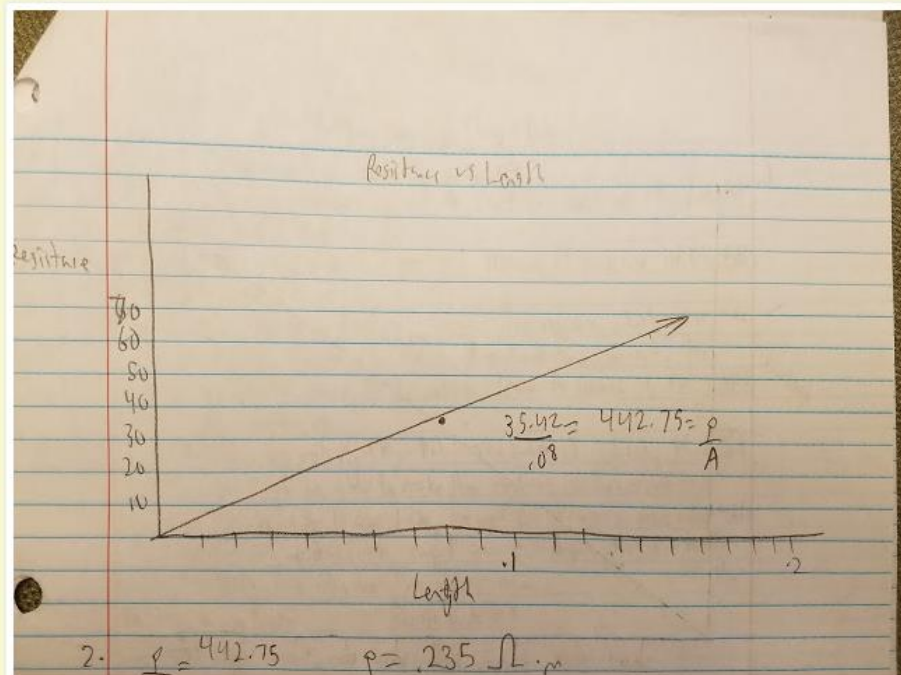 Resistance vs Length
Resistance
70
60
50
40
30
20
10
35.42/.08 = 442.75 = ρ/A
.1
.2
Length
2. ρ = 442.75 ρ = .235 Ω·m